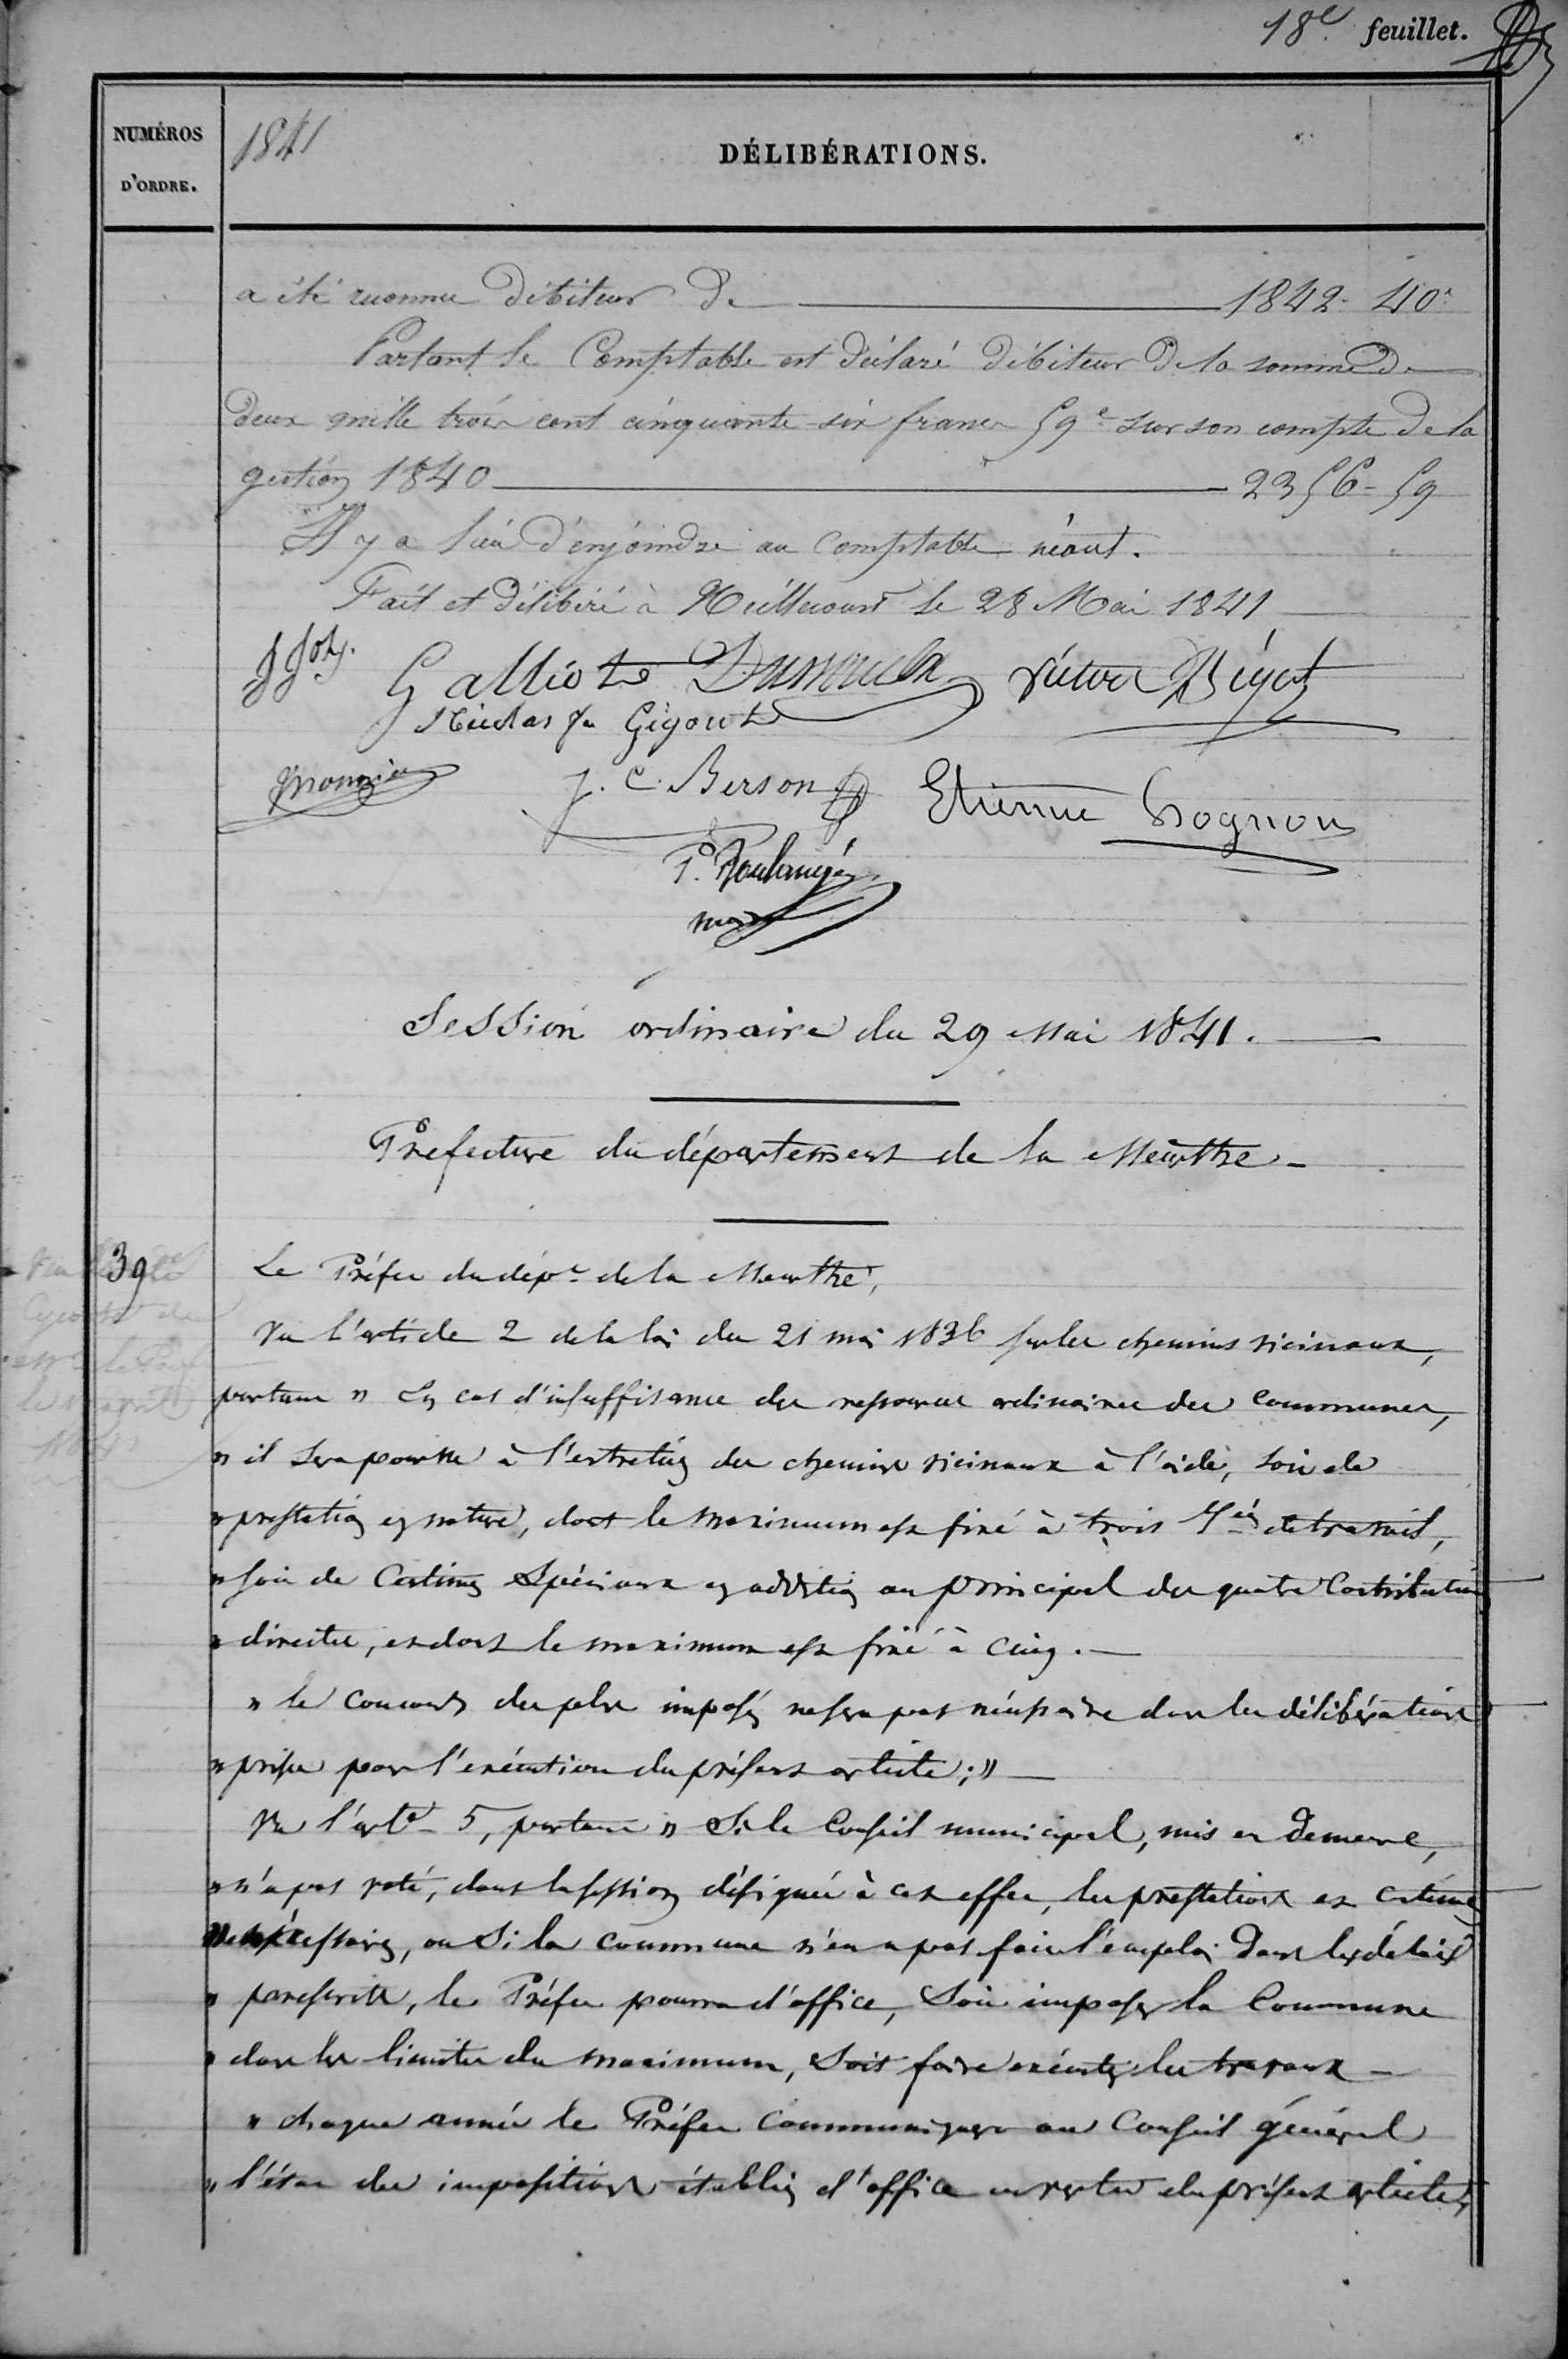 18e feuillet.
NUMÉROS
D'ORDRE.
1841
DÉLIBÉRATIONS.
a été reconnu débiteur de 1842 - 40c
Partant le Comptable est déclaré débiteur de la somme de
deux mille trois cent cinquante-six francs 59c sur son compte de la
gestion 1840 2356 - 59
Il y a lieu d'enjoindre au comptable néant.
Fait et délibéré à le 28 Mai 1841
J Joly. Galliot Victor Bigot
Nicolas Gigout
J. C. Berson Etienne Grognon
P. Boulangé
Session ordinaire du 29 Mai 1841.
Prefecture du département de la Meurthe -
39
Le Préfet du dépt de la Meurthe,
Vu l'article 2 de la loi du 21 mai 1836 sur les chemins vicinaux,
portant " En cas d'insuffisance des ressources ordinaires des communes,
" il sera pourvu à l'entretien des chemins vicinaux à l'aide, soit de
" prestation en nature, dont le maximum est fixé à trois de travail,
" soit de Centimes Spéciaux en addition au principal des quatre Contributions
" directes, et dont le maximum est fixé à cinq. —
" le concours des plus imposés ne sera pas nécessaire dans les délibérations
" prises pour l'exécution du présent article ; " —
Vu l'arte - 5, portant " Si le Conseil municipal, mis en demeure,
" n'a pas voté, dans la session désignée à cet effet, les prestations et centimes
" nécessaires, ou Si la commune n'en a pas fait l'emploi dans les délais
" prescrits, le Préfet pourra d'office, Soit imposer la Commune
" dans les limites du maximum, Soit faire exécuter les travaux -
" chaque année le Préfet communiquera au Conseil général
" l'état des impositions établies d'office en vertu du présent article,